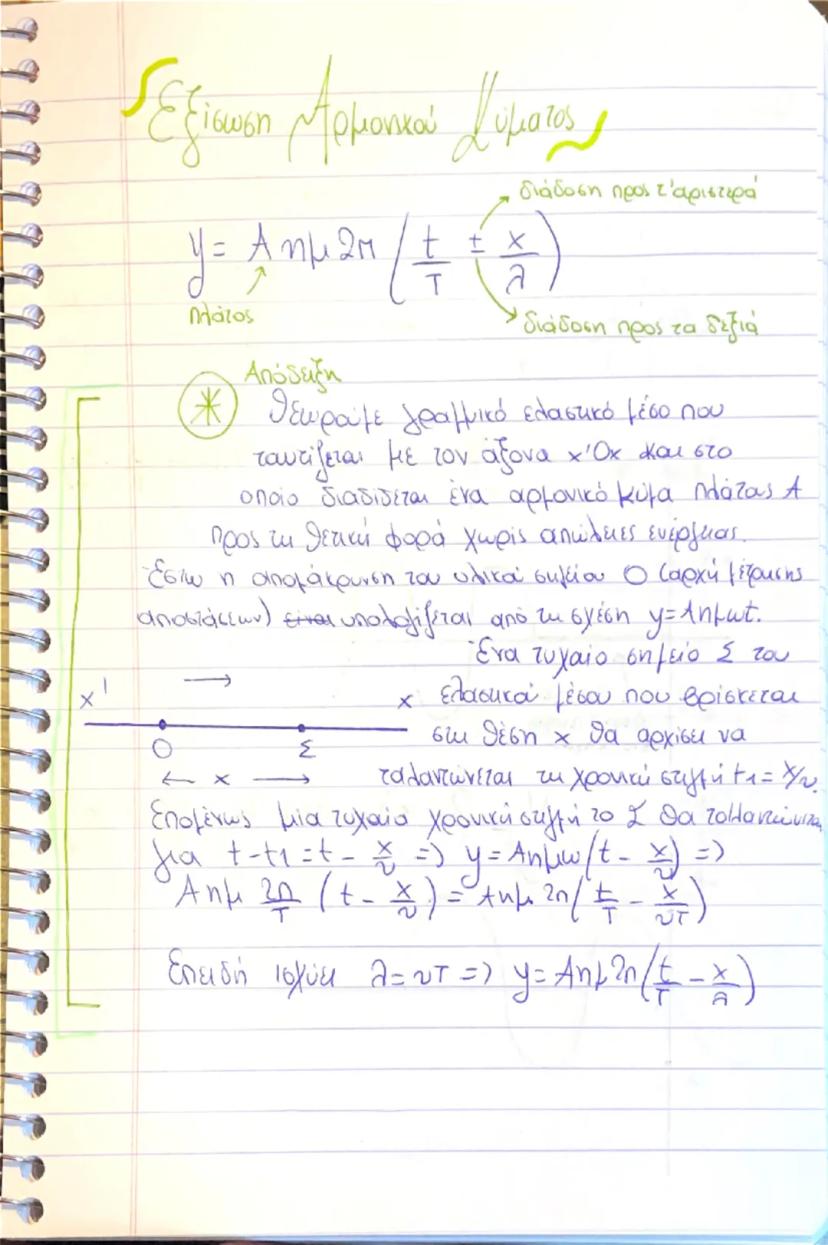 Εξίσωση Αρμονικού Κύματος
διάδοση προς τ'αριστερά
y = Α ημ 2π (t/T ± x/λ)
πλάτος
διάδοση προς τα δεξιά
Απόδειξη
* Θεωρούμε γραμμικό ελαστικό μέσο που
ταυτίζεται με τον άξονα x'Οx και στο
οποίο διαδίδεται ένα αρμονικό κύμα πλάτους Α
προς τη θετική φορά χωρίς απώλειες ενέργειας.
Έστω η απομάκρυνση του υλικού σημείου Ο (αρχή μέτρησης
αποστάσεων) είναι υπολογίζεται από τη σχέση y=Αημωt.
Ένα τυχαίο σημείο Σ του
ελαστικού μέσου που βρίσκεται
στη θέση x θα αρχίσει να
ταλαντώνεται τη χρονική στιγμή t1 = x/υ.
x' → x
Ο Σ
← x →
Επομένως μία τυχαία χρονική στιγμή το Σ θα ταλαντώνεται
για t-t1 = t - x/υ => y = Αημω(t - x/υ) =>
Αημ 2π/T (t - x/υ) = Αημ 2π(t/T - x/υT)
Επειδή ισχύει λ = υT => y = Αημ2π(t/T - x/λ)